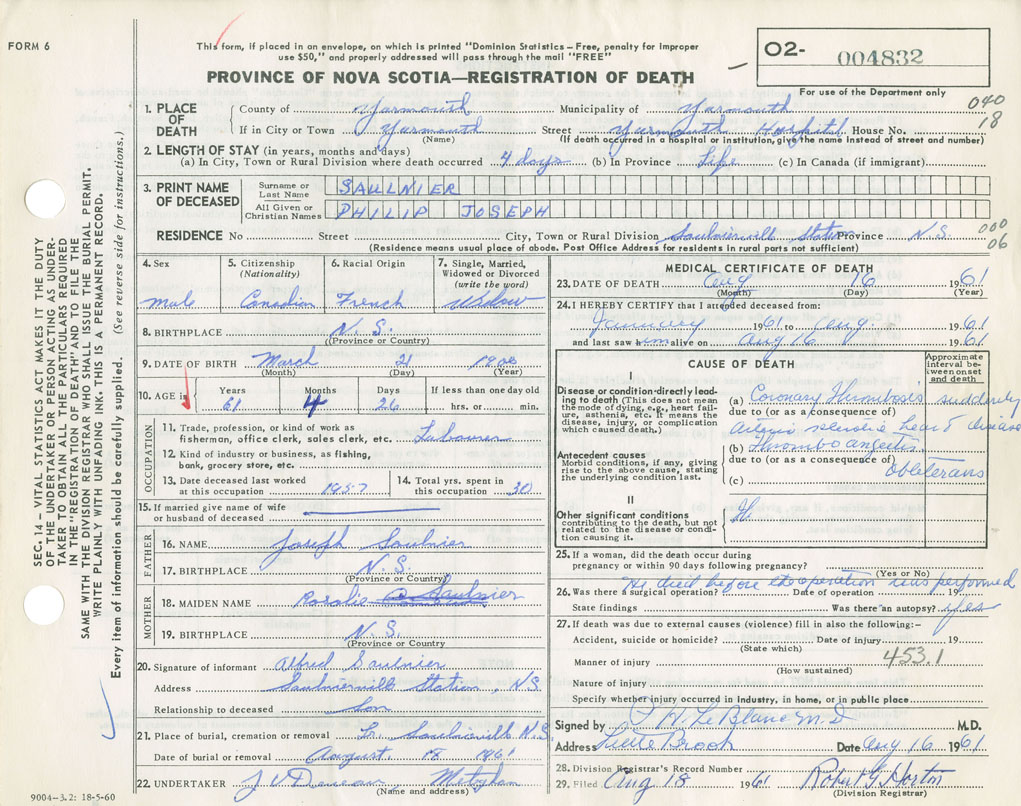 FORM 6
This form, if placed in an envelope, on which is printed "Dominion Statistics – Free, penalty for improper
use $50," and properly addressed will pass through the mail "FREE"
O2- 004832
PROVINCE OF NOVA SCOTIA—REGISTRATION OF DEATH
For use of the Department only
040
18
1. PLACE OF DEATH
County of Yarmouth Municipality of Yarmouth
If in City or Town Yarmouth Street Yarmouth Hospital House No.
(Name) (If death occurred in a hospital or institution, give the name instead of street and number)
2. LENGTH OF STAY (in years, months and days)
(a) In City, Town or Rural Division where death occurred 4 days (b) In Province Life (c) In Canada (if immigrant)
3. PRINT NAME OF DECEASED
Surname or Last Name SAULNIER
All Given or Christian Names PHILIP JOSEPH
000
06
RESIDENCE No Street City, Town or Rural Division Saulnierville Station Province N.S.
(Residence means usual place of abode. Post Office Address for residents in rural parts not sufficient)
4. Sex
male
5. Citizenship
(Nationality)
Canadian
6. Racial Origin
French
7. Single, Married,
Widowed or Divorced
(write the word)
Widow
8. BIRTHPLACE N.S.
(Province or Country)
9. DATE OF BIRTH March 21 1900
(Month) (Day) (Year)
10. AGE in
Years 61
Months 4
Days 26
If less than one day old
hrs. or min.
OCCUPATION
11. Trade, profession, or kind of work as
fisherman, office clerk, sales clerk, etc. Labourer
12. Kind of industry or business, as fishing,
bank, grocery store, etc.
13. Date deceased last worked
at this occupation 1957
14. Total yrs. spent in
this occupation 30
15. If married give name of wife
or husband of deceased
FATHER
16. NAME Joseph Saulnier
17. BIRTHPLACE N.S.
(Province or Country)
MOTHER
18. MAIDEN NAME Rosalie Saulnier
19. BIRTHPLACE N.S.
(Province or Country
20. Signature of informant Alfred Saulnier
Address Saulnierville Station, N.S.
Relationship to deceased Son
21. Place of burial, cremation or removal Lr. Saulnierville N.S.
Date of burial or removal August 18 1961
22. UNDERTAKER Meteghan
(Name and address)
9004–3.2: 18-5-60
MEDICAL CERTIFICATE OF DEATH
23. DATE OF DEATH Aug 16 1961
(Month) (Day) (Year)
24. I HEREBY CERTIFY that I attended deceased from:
January 1961 to Aug. 1961
and last saw him alive on Aug 16 1961
CAUSE OF DEATH
Approximate
interval be-
tween onset
and death
I
Disease or condition directly lead-
ing to death (This does not mean
the mode of dying, e.g., heart fail-
ure, asthenia, etc. It means the
disease, injury, or complication
which caused death.)
(a) Coronary Thrombosis suddenly
due to (or as a consequence of)
Arterio sclerotic heart disease
Antecedent causes
Morbid conditions, if any, giving
rise to the above cause, stating
the underlying condition last.
(b) Thrombo angeitis
due to (or as a consequence of)
Obliterans
(c)
II
Other significant conditions
contributing to the death, but not
related to the disease or condi-
tion causing it.
25. If a woman, did the death occur during
pregnancy or within 90 days following pregnancy?
(Yes or No)
He died before operation was performed
26. Was there a surgical operation? Date of operation 19
State findings Was there an autopsy? yes
27. If death was due to external causes (violence) fill in also the following:–
Accident, suicide or homicide? Date of injury 19
(State which)
453.1
Manner of injury
(How sustained)
Nature of injury
Specify whether injury occurred in industry, in home, or in public place
Signed by P H LeBlanc M.D M.D.
Address Little Brook Date Aug 16 1961
28. Division Registrar's Record Number
29. Filed Aug 18 1961 Robert G Horton
(Division Registrar)
SEC. 14 – VITAL STATISTICS ACT MAKES IT THE DUTY
OF THE UNDERTAKER OR PERSON ACTING AS UNDER-
TAKER TO OBTAIN ALL THE PARTICULARS REQUIRED
IN THE "REGISTRATION OF DEATH" AND TO FILE THE
SAME WITH THE DIVISION REGISTRAR WHO SHALL ISSUE THE BURIAL PERMIT.
WRITE PLAINLY WITH UNFADING INK. THIS IS A PERMANENT RECORD.
Every item of information should be carefully supplied. (See reverse side for instructions.)